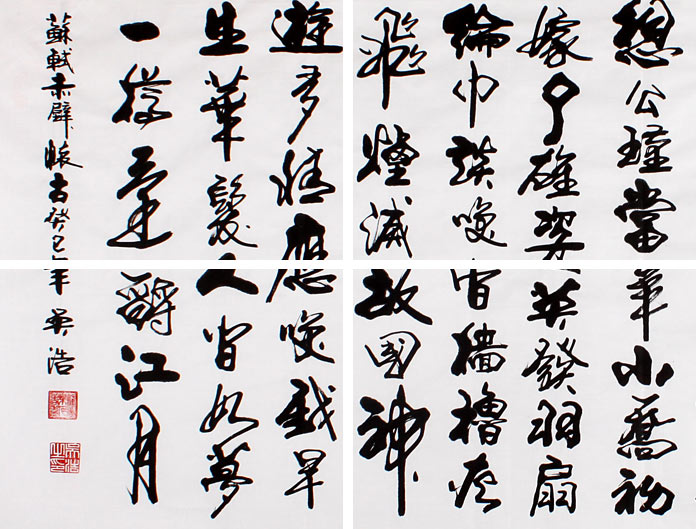 想公瑾當年小喬初
嫁了雄姿英發羽扇
綸巾談咲間檣櫓灰
飛煙滅故國神
遊多情應咲我早
生華髮人間如夢
一樽還酹江月
蘇軾赤壁懷古癸巳年吳浩